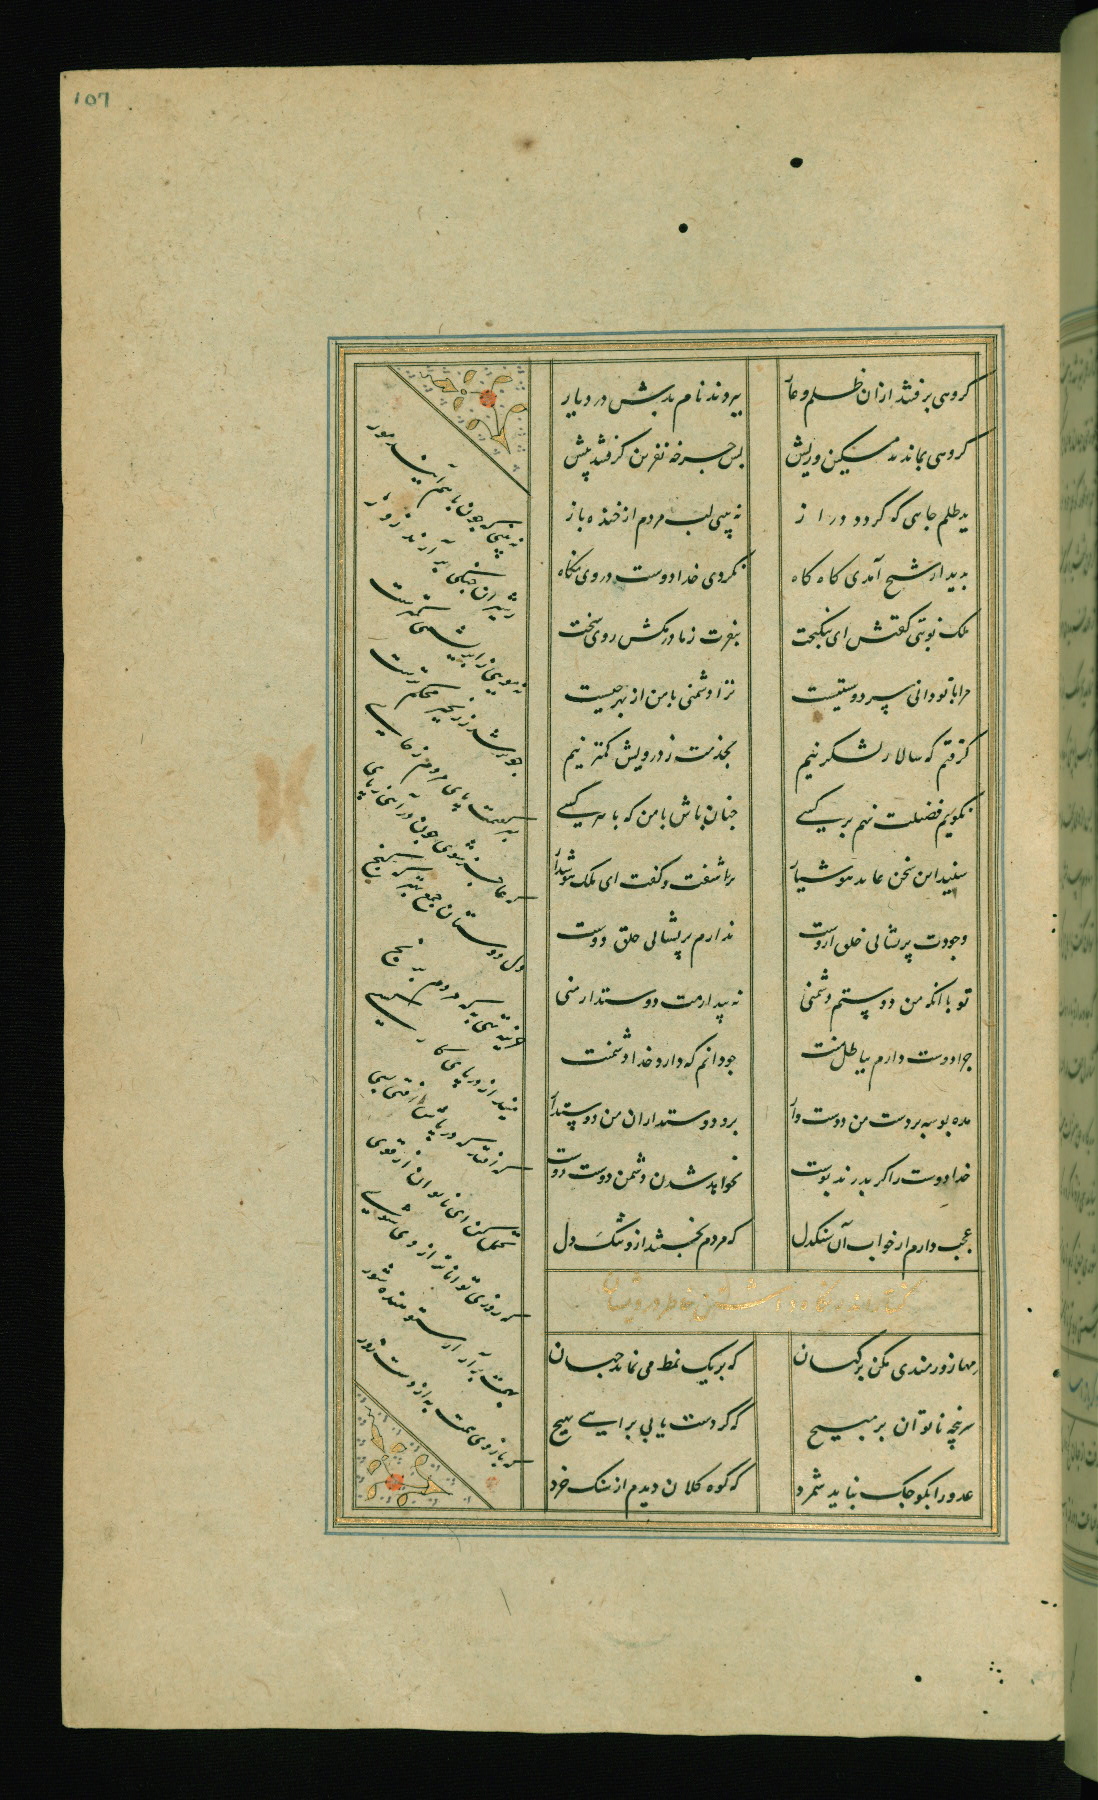 107
کروهی برفتند ازان ظلم و عار
ببردند نام بدش در دیار
کروهی بماند مسکین و ریش
پس چرخه نفرین کرفتند پیش
ید ظلم جایی که کردد دراز
نه بینی لب مردم از خنده باز
بدیدار شیخ آمدی کاه کاه
نکردی خدادوست در وی نکاه
ملک نوبتی کفتش ای نیکبخت
بنفرت ز ما درمکش روی سخت
مرا با تو دانی سر دوستیست
ترا دشمنی با من از بهر چیست
کرفتم که سالار لشکر نیم
بخدمت ز درویش کمتر نیم
نکویم فضیلت نهم بر کسی
چنان باش با من که با هر کسی
شنید این سخن عابد هوشیار
براشفت و کفت ای ملک هوشدار
وجودت پریشانی خلق ازوست
ندارم پریشانی خلق دوست
تو با آنکه من دوستم دشمنی
نه پندارمت دوستدار منی
چرا دوست دارم بباطل منت
چو دانم که دارد خدا دشمنت
مده بوسه بر دست من دوست وار
برو دوستداران من دوست دار
خدادوست را کر بدرند پوست
نخواهد شدن دشمن دوست دوست
عجب دارم از خواب آن سنکدل
که مردم نخسبند ازو تنک دل
کفتار اندر نکاه داشتن خاطر درویشان
مها زورمندی مکن بر کهان
که بر یک نمط می نماند جهان
سر پنجه ناتوان بر مپیچ
که کر دست یابی بر آیی بهیچ
عدو را بکوچک نباید شمرد
که کوه کلان دیدم از سنک خرد
نه بینی که چون با هم آیند مور
ز شیران جنکی برآرند زور
نه مویی ز ابریشمی کمترست
چو پر شد ز زنجیر محکم ترست
مبر کفتمت پای مردم ز جای
که عاجز شوی چون درآئی ز پای
دل دوستان جمع بهتر که کنج
خزینه تهی به که مردم برنج
مینداز در پای کار کسی
که افتد که در پایش افتی بسی
تحمل کن ای ناتوان از قوی
که روزی تواناتر از وی شوی
بهمت برآر از ستیهنده شور
که بازوی همت به از دست زور